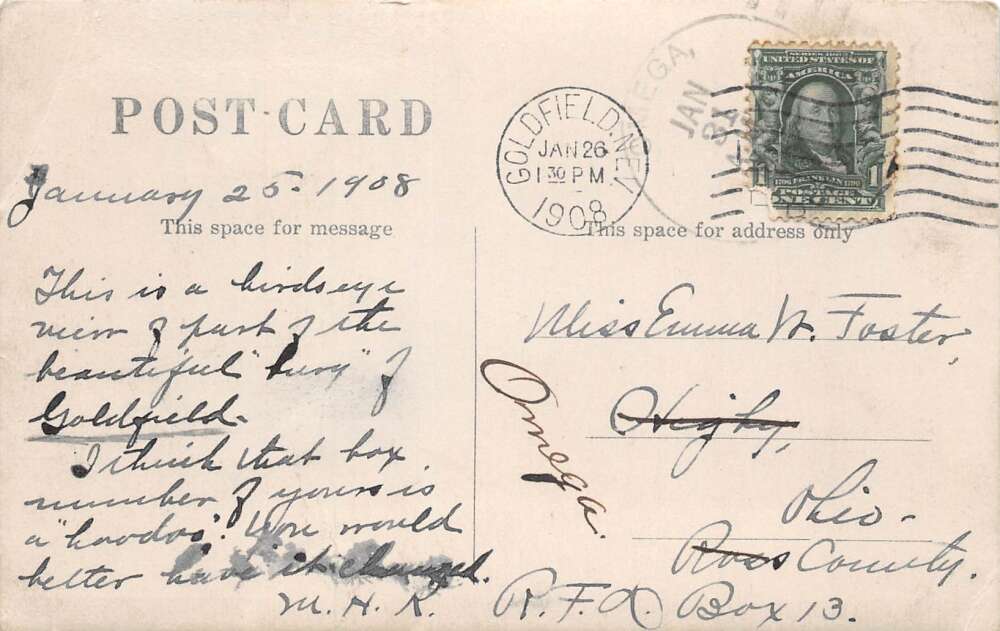 POST CARD
January 25- 1908
This space for message
This is a birdseye
view of part of the
beautiful "burg" of
Goldfield.
I think that box
number of yours is
a "hoodoo". You would
better have it changed.
M. H. K.
GOLDFIELD. NEV.
JAN 26
1 30 PM
1908
OMEGA,
JAN
31
SERIES 1902
UNITED STATES OF
AMERICA
1706 FRANKLIN 1790
POSTAGE
1 ONE CENT 1
This space for address only
Miss Emma W. Foster,
Higby,
Omega.
Ohio-
Ross County.
R. F. D. Box 13.